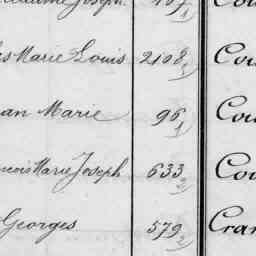 Joseph 167 1 Cou
s Marie Louis 2108 1 Cou
an Marie 96 1 Cou
ncois Marie Joseph 633 2 Cou
Georges 579 2 Cran